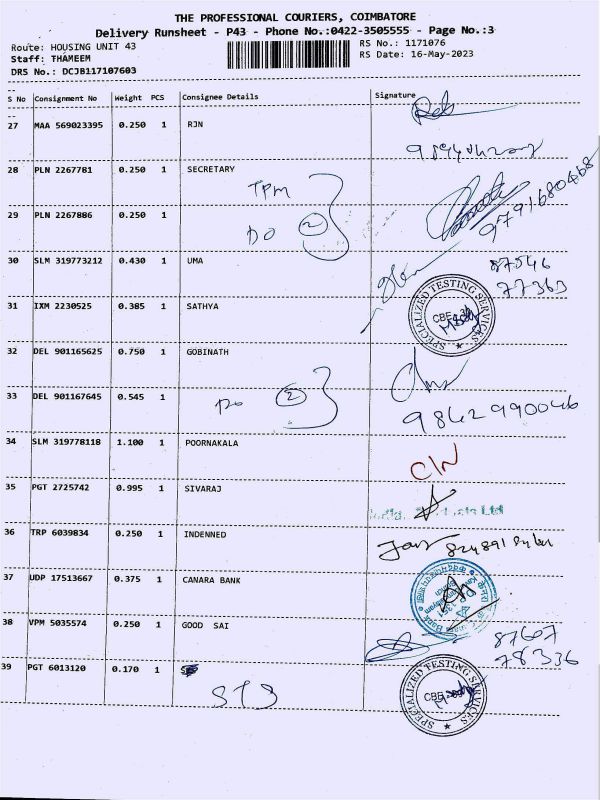 THE PROFESSIONAL COURIERS, COIMBATORE
Delivery Runsheet - P43 - Phone No.:0422-3505555 - Page No.:3
Route: HOUSING UNIT 43 RS No.: 1171076
Staff: THAMEEM RS Date: 16-May-2023
DRS No.: DCJB117107603
S No Consignment No Weight PCS Consignee Details Signature
27 MAA 569023395 0.250 1 RJN
28 PLN 2267781 0.250 1 SECRETARY
TPM
9791680468
29 PLN 2267886 0.250 1
DO 2
30 SLM 319773212 0.430 1 UMA 87546
77363
31 IXM 2230525 0.385 1 SATHYA
SPECIALIZED TESTING SERVICES
CBE
32 DEL 901165625 0.750 1 GOBINATH
33 DEL 901167645 0.545 1
Do 2 9842990046
34 SLM 319778118 1.100 1 POORNAKALA
C/N
35 PGT 2725742 0.995 1 SIVARAJ
Ltd
36 TRP 6039834 0.250 1 INDENNED
37 UDP 17513667 0.375 1 CANARA BANK
38 VPM 5035574 0.250 1 GOOD SAI 87607
78336
39 PGT 6013120 0.170 1
STS
SPECIALIZED TESTING SERVICES
CBE